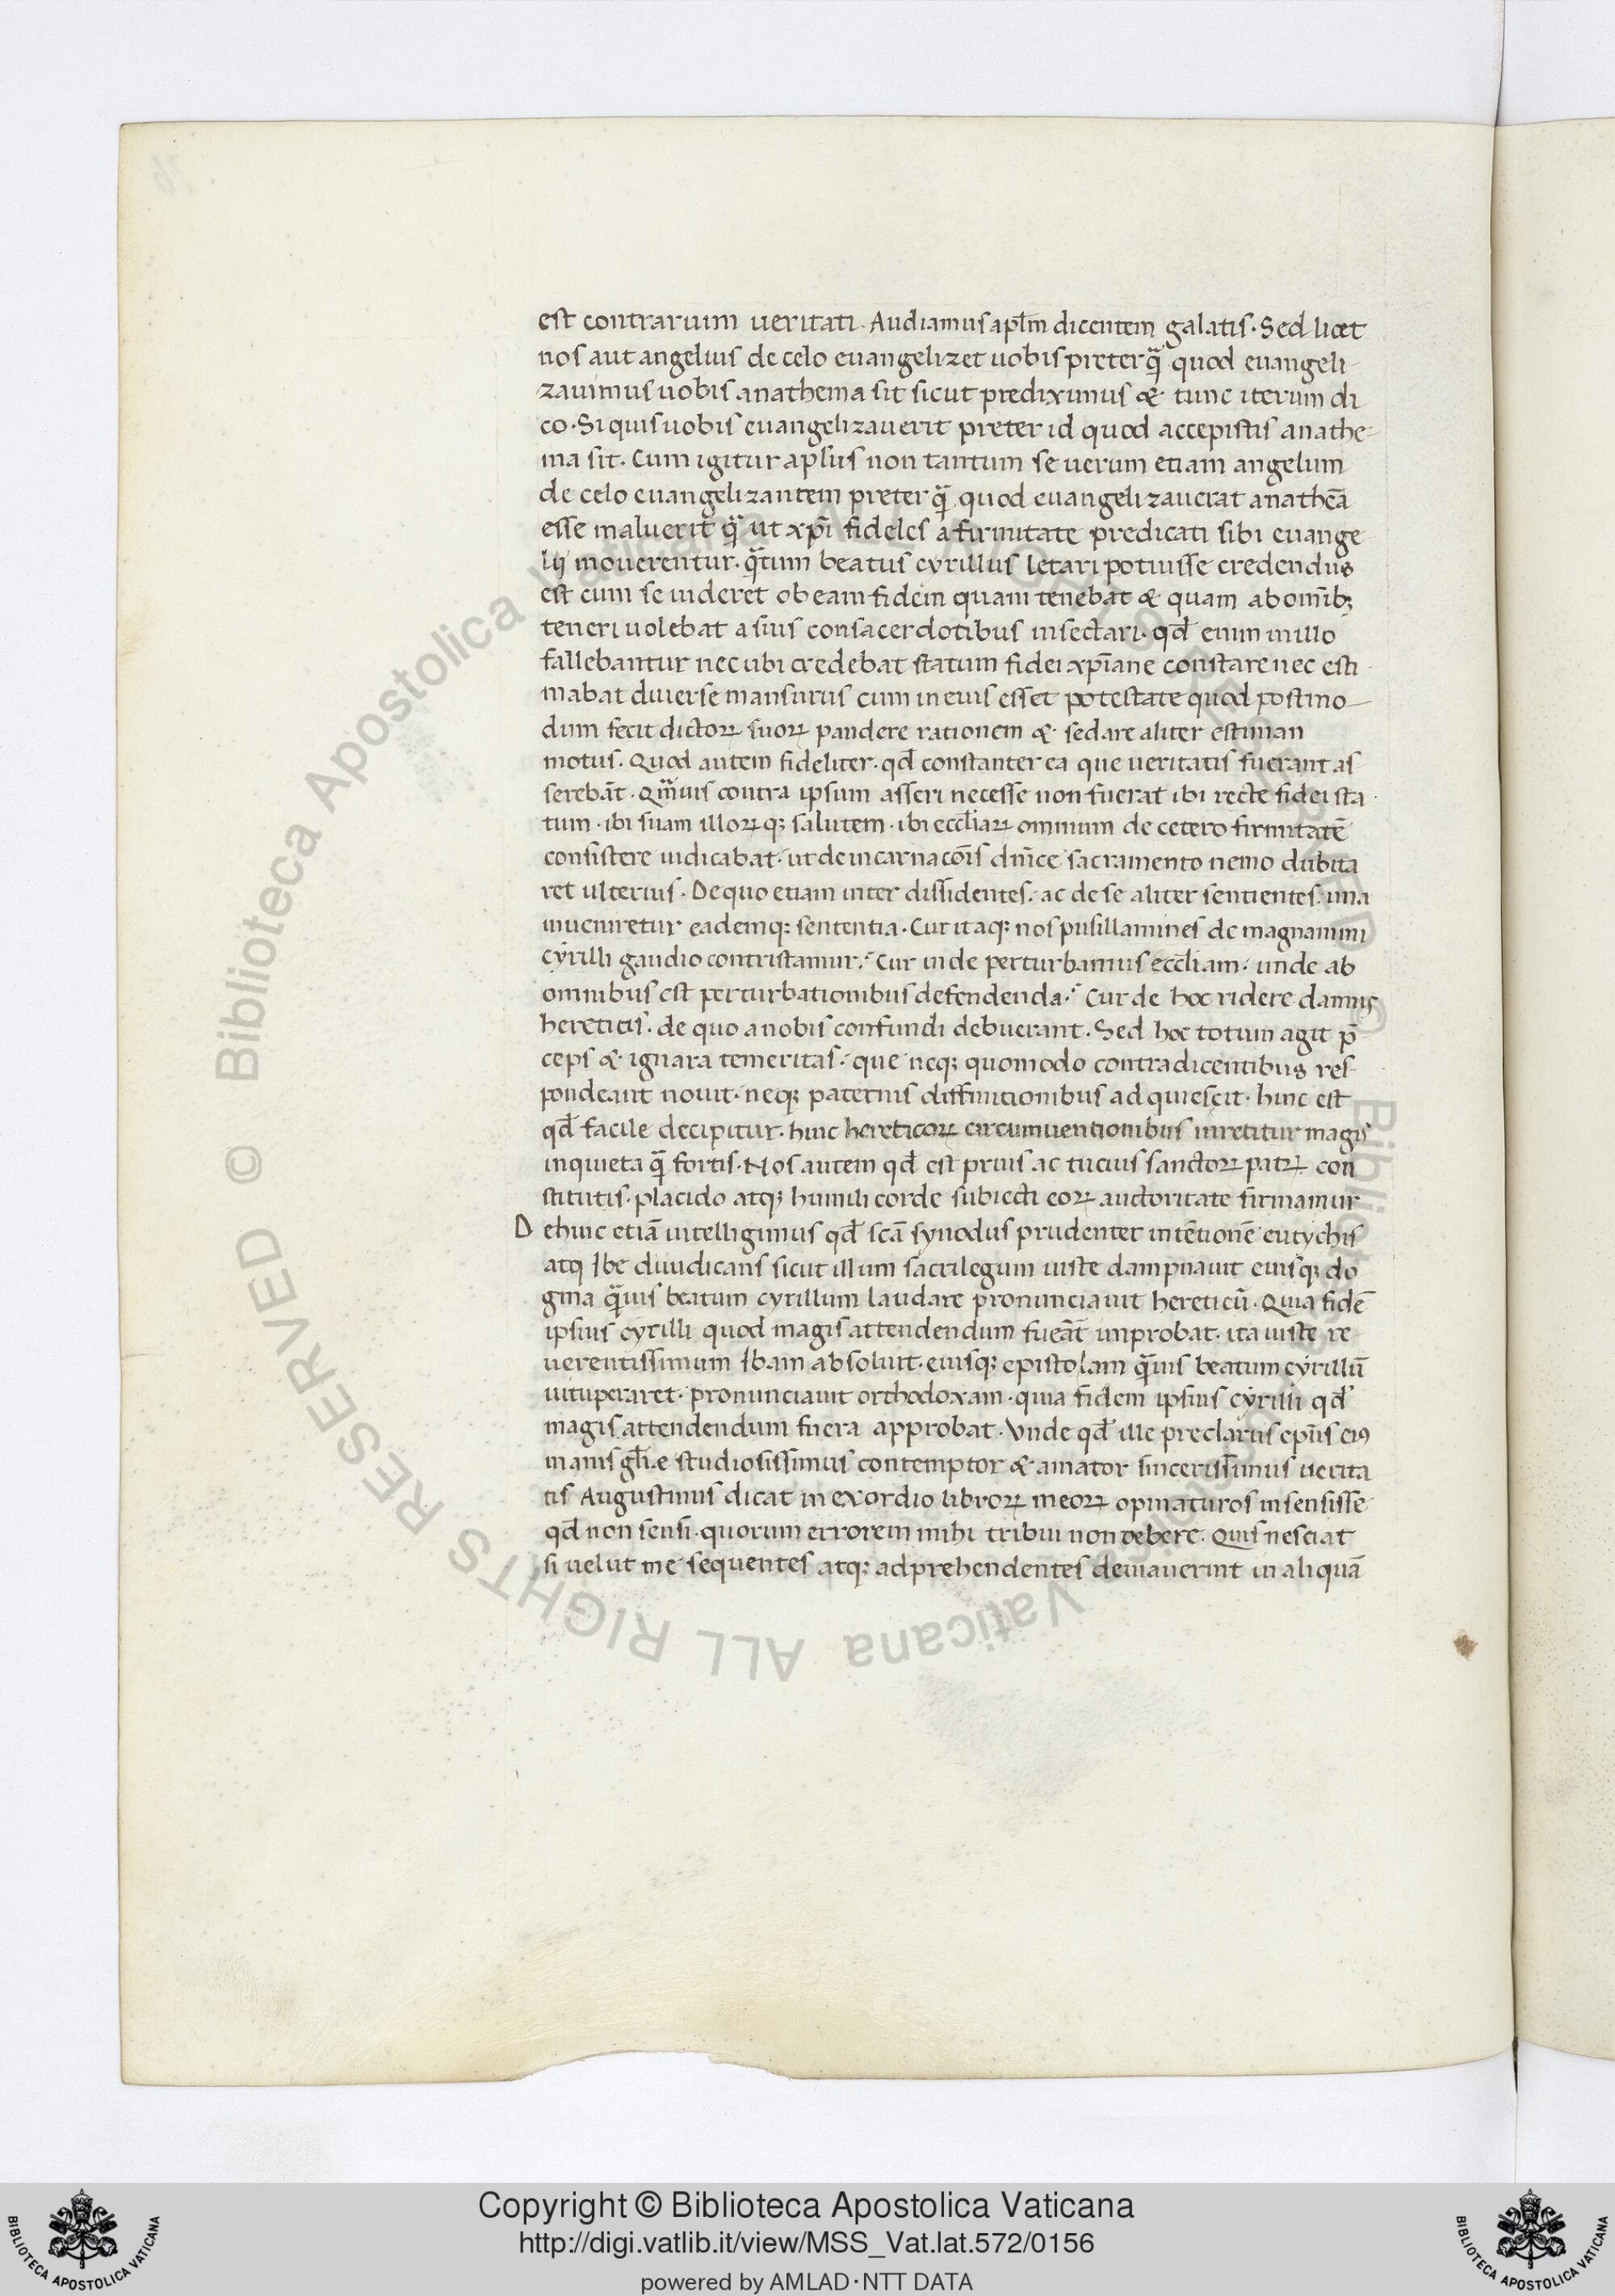 est contrarium ueritati. Audiamus apl̄m dicentem galatis. Sed licet
nos aut angelus de celo euangelizet uobis preterq̄ quod euangeli-
zauimus uobis anathema sit sicut prediximus & tunc iterum di
co. Si quis uobis euangelizauerit preter id quod accepistis anathe-
ma sit. Cum igitur apl̄us non tantum se uerum etiam angelum
de celo euangelizantem preterq̄ quod euangelizauerat anathēa
esse maluerit q̄ ut xp̄i fideles a firmitate predicati sibi euange
lij mouerentur. q̄tum beatus cyrillus letari potuisse credendus
est cum se uideret ob eam fidem quam tenebat & quam ab omībꝫ
teneri uolebat a suis consacerdotibus insectari. qd̄ enim in illo
fallebantur nec ubi credebat statum fidei xp̄iane constare nec esti
mabat diuerse mansurus cum in eius esset potestate quod postmo-
dum fecit dictoꝝ suoꝝ pandere rationem & sedare aliter estiman
motus. Quod autem fideliter. qd̄ constanter ea que ueritatis fuerant as
serebāt. Qm̄uis contra ipsum asseri necesse non fuerat ibi recte fidei sta
tum. ibi suam illoꝝqꝫ salutem. ibi eccl̄iaꝝ omnium de cetero firmitatē
consistere iudicabat. ut de incarnacōis dn̄ice sacramento nemo dubita
ret ulterius. De quo etiam inter dissidentes. ac de se aliter sentientes. una
inueniretur eademqꝫ sententia. Cur itaqꝫ nos pusillamines de magnanimi
cyrilli gaudio contristamur? Cur inde perturbamus eccl̄iam. unde ab
omnibus est perturbationibus defendenda? Cur de hoc ridere damus
hereticis. de quo a nobis confundi debuerant. Sed hoc totum agit p̄
ceps & ignara temeritas. que neqꝫ quomodo contradicentibus res-
pondeant nouit. neqꝫ paternis diffinitionibus adquiescit. hinc est
qd̄ facile decipitur. hinc hereticoꝝ circumuentionibus inretitur magis
inquieta q̄ fortis. Nos autem qd̄ est prius ac tucius sanctoꝝ patꝝ con
stitutis. placido atqꝫ humili corde subiecti eoꝝ auctoritate firmamur
D ehinc etiā intelligimus qd̄ scā synodus prudenter intētionē eutychis
atq Ibe diiudicans sicut illum sacrilegum iuste dampnauit eiusqꝫ do
gma q̄uis beatum cyrillum laudare pronunciauit hereticū. Quia fidē
ipsius cyrilli quod magis attendendum fueāt improbat. ita iuste re
uerentissimum Ibam absoluit. eiusqꝫ epistolam q̄uis beatum cyrillū
uituperaret. pronunciauit orthodoxam. quia fidem ipsius cyrilli qd̄
magis attendendum fuera approbat. Vnde qd̄ ille preclarus ep̄us eiꝰ
inanis gl̄ie studiosissimus contemptor & amator sincerissimus uerita
tis Augustinus dicat in exordio libroꝝ meoꝝ opinaturos in sensisse
qd̄ non sensi. quorum errorem mihi tribui non debere. Quis nesciat
si uelut me sequentes atqꝫ adprehendentes deuiauerint in aliquā
© Biblioteca Apostolica Vaticana ALL RIGHTS RESERVED
Copyright © Biblioteca Apostolica Vaticana
http://digi.vatlib.it/view/MSS_Vat.lat.572/0156
powered by AMLAD·NTT DATA
BIBLIOTECA APOSTOLICA VATICANA
BIBLIOTECA APOSTOLICA VATICANA